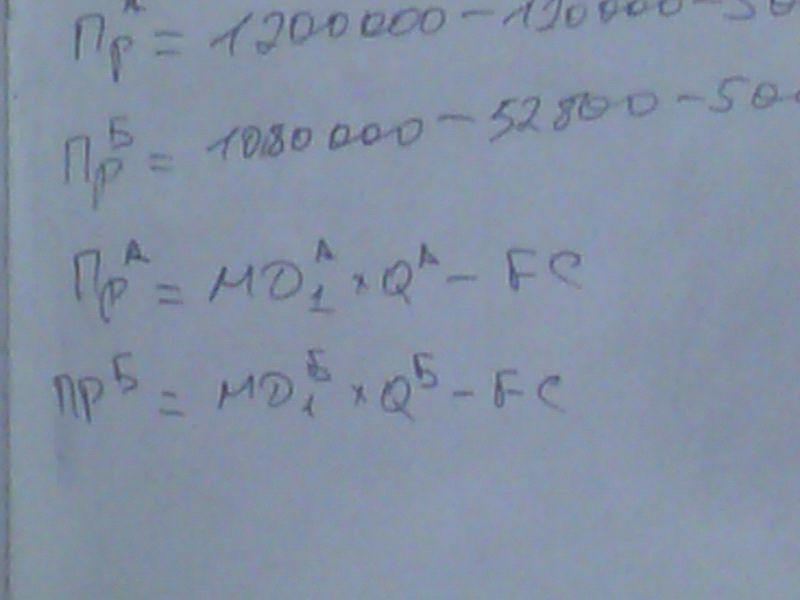 Пр^А = 1200000 - 120000 - 50
Пр^Б = 1080000 - 52800 - 500
Пр^А = МД₁^А × Q^А - FC
Пр^Б = МД₁^Б × Q^Б - FC